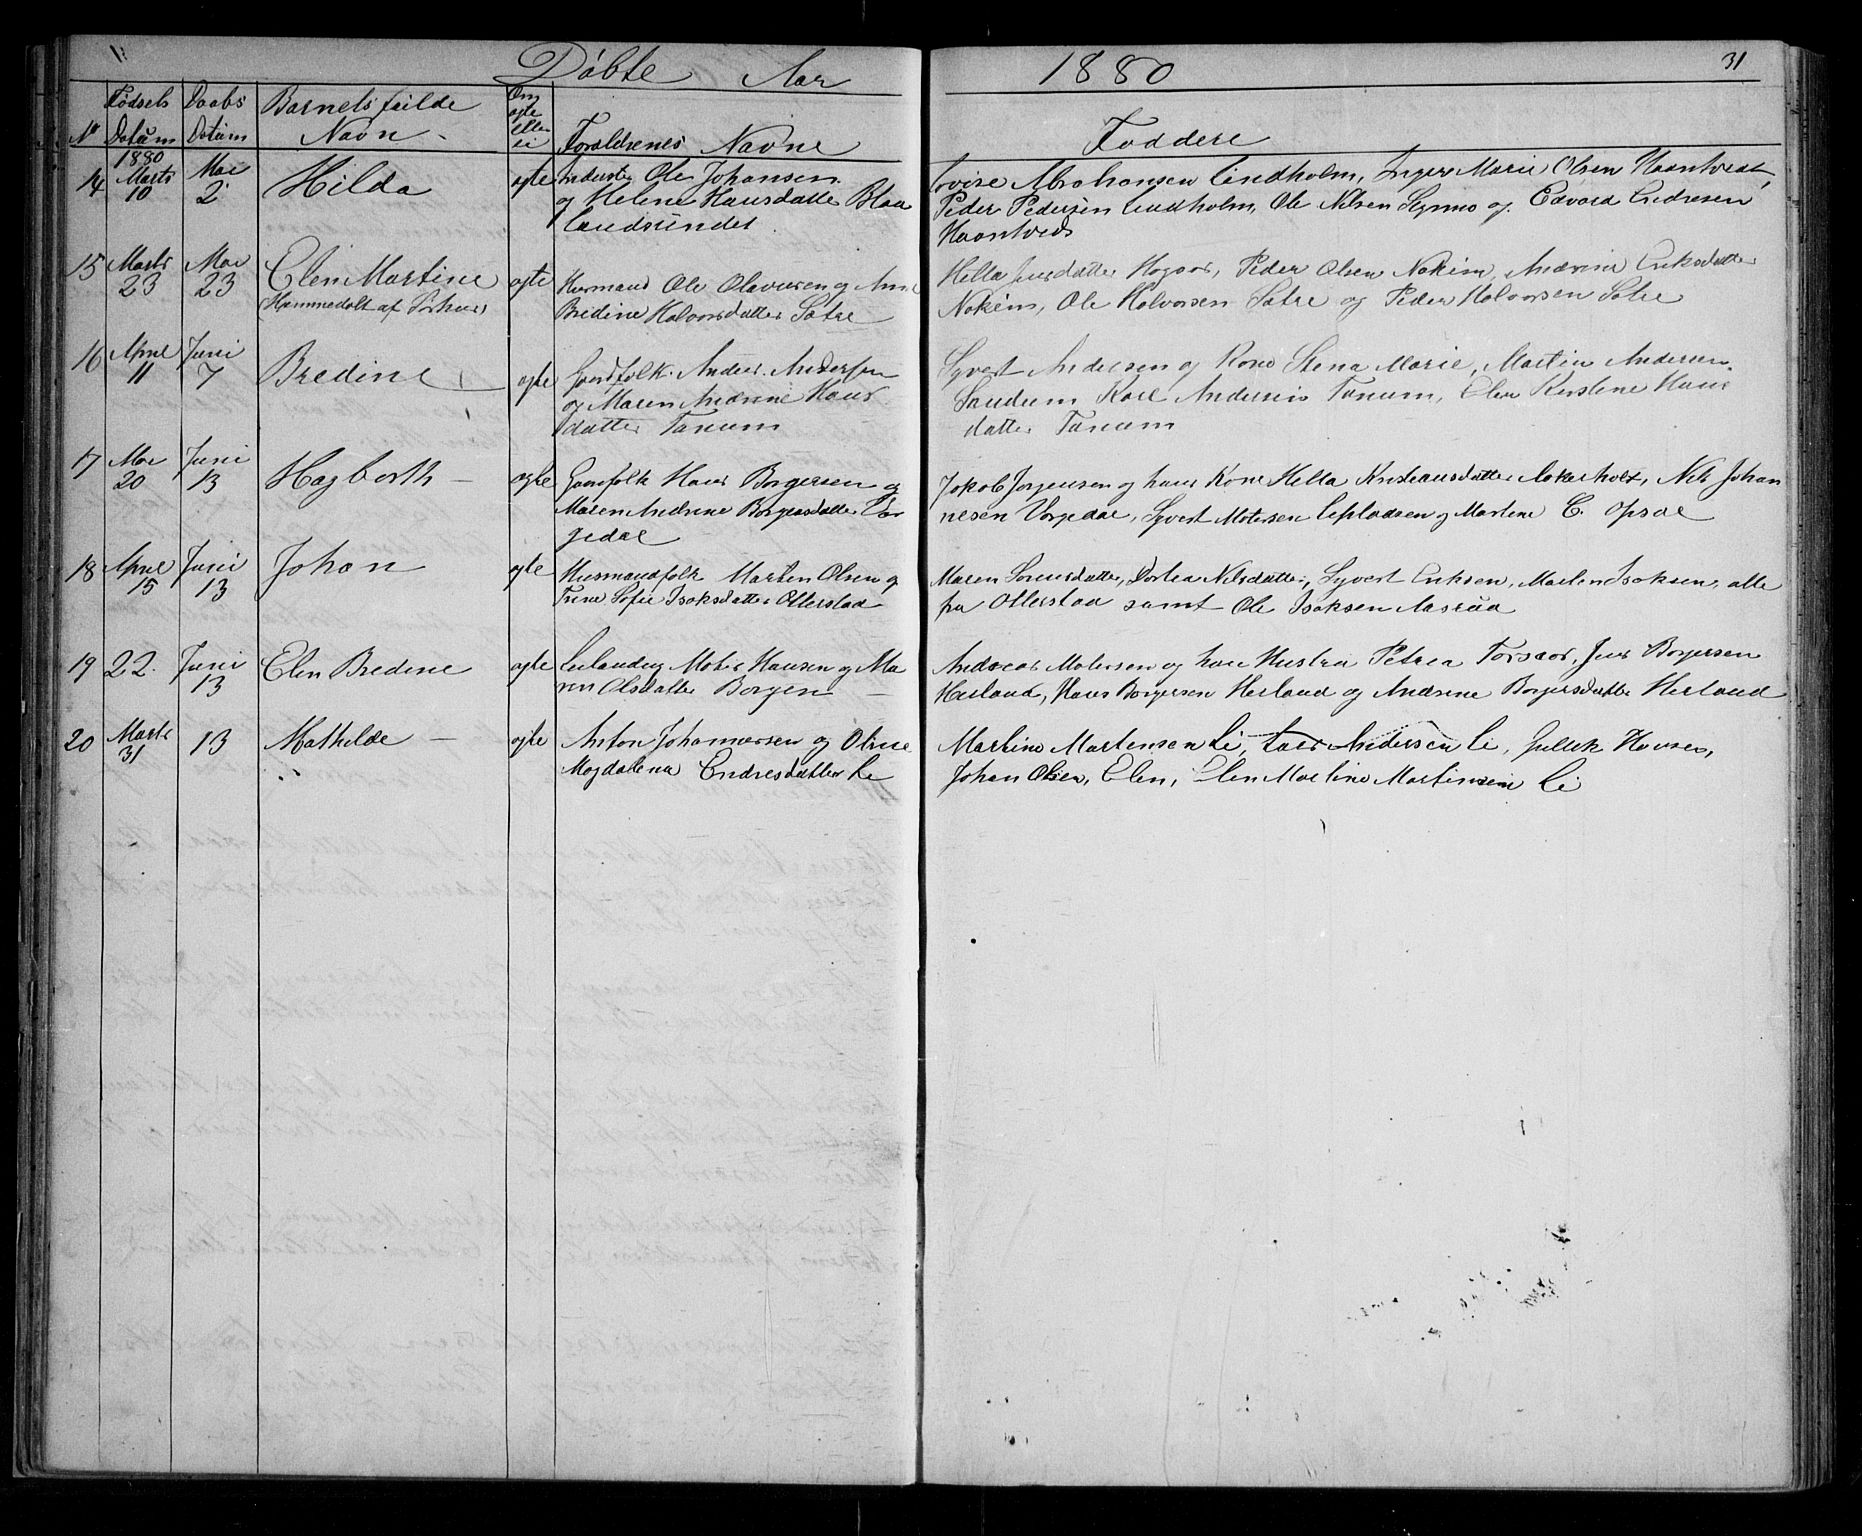 Döbte Aar 1880 31
No Födsels Datum Daabs Datum Barnets fulde Navn Om ægte eller ei Forældrenes Navne Faddere
14 1880 Marts 10 Mai 2 Hilda ægte Inderste Ole Johansen
og Helene Hansdatter Blaa
landsundet
Lovise Abrahansen Lindholm, Inger Marie Olsen Haantvedt,
Peder Pedersen Lindholm, Ole Nilsen og Edvard Endresen
Haantveds
15 Marts 23 Mai 23 Elen Martine ægte Husmand Ole Olavesen og Anne
(Hjemmedøbt af )
Bredine Halvorsdatter Sætre
Hella Jensdatter Peder Olsen Nakim, Andrine Eriksdatter
Nakim, Ole Halvorsen Satre og Peder Halvorsen Satre
16 April 11 Juni 7 Bredine ægte Gaardfolk Anders Andersen
og Maren Andrine Hans
datter Tanum
Syvert Andersen og Kone Stena Marie, Martin Andersen
Sandum Karl Andersen Tanum, Elen Kirstine Hans
datter Tanum
17 Mai 20 Juni 13 Hagbarth ægte Gaardfolk Hans Borgersen og
Maren Andrine Borgersdatter Vor
gedal
Jakob Jorgensen og hans Kone Hella Kristiansdatter Nils Johan
nesen Vorgedal, Syvert Matersen og Martine C. Opsal
18 April 15 Juni 13 Johan ægte Husmandfolk Marten Olsen og
Trine Sofie Isaksdatter Ollerstad
Maren Sorensdatter, Dortea Nilsdatter, Syvert Eriksen, Marten Isaksen, alle
fra Ollerstad samt Ole Isaksen Aasrud
19 22. Juni 13 Elen Bredine ægte Leilandig Matis Hansen og Ma
ren Olsdatter Borgen
Andreas Matersen og hans Hustru Petrea Jens Borgersen
Hasland, Hans Borgersen Hesland og Andrine Borgersdatter Hesland
20 Marts 31 13 Mathilde ægte Anton Johannessen og Oline
Magdalena Endresdatter Li
Martine Martensen Li, Lars Andersen Li, Gullik Hansen,
Johan Olsen, Elen, Elen Martine Martinsen Li